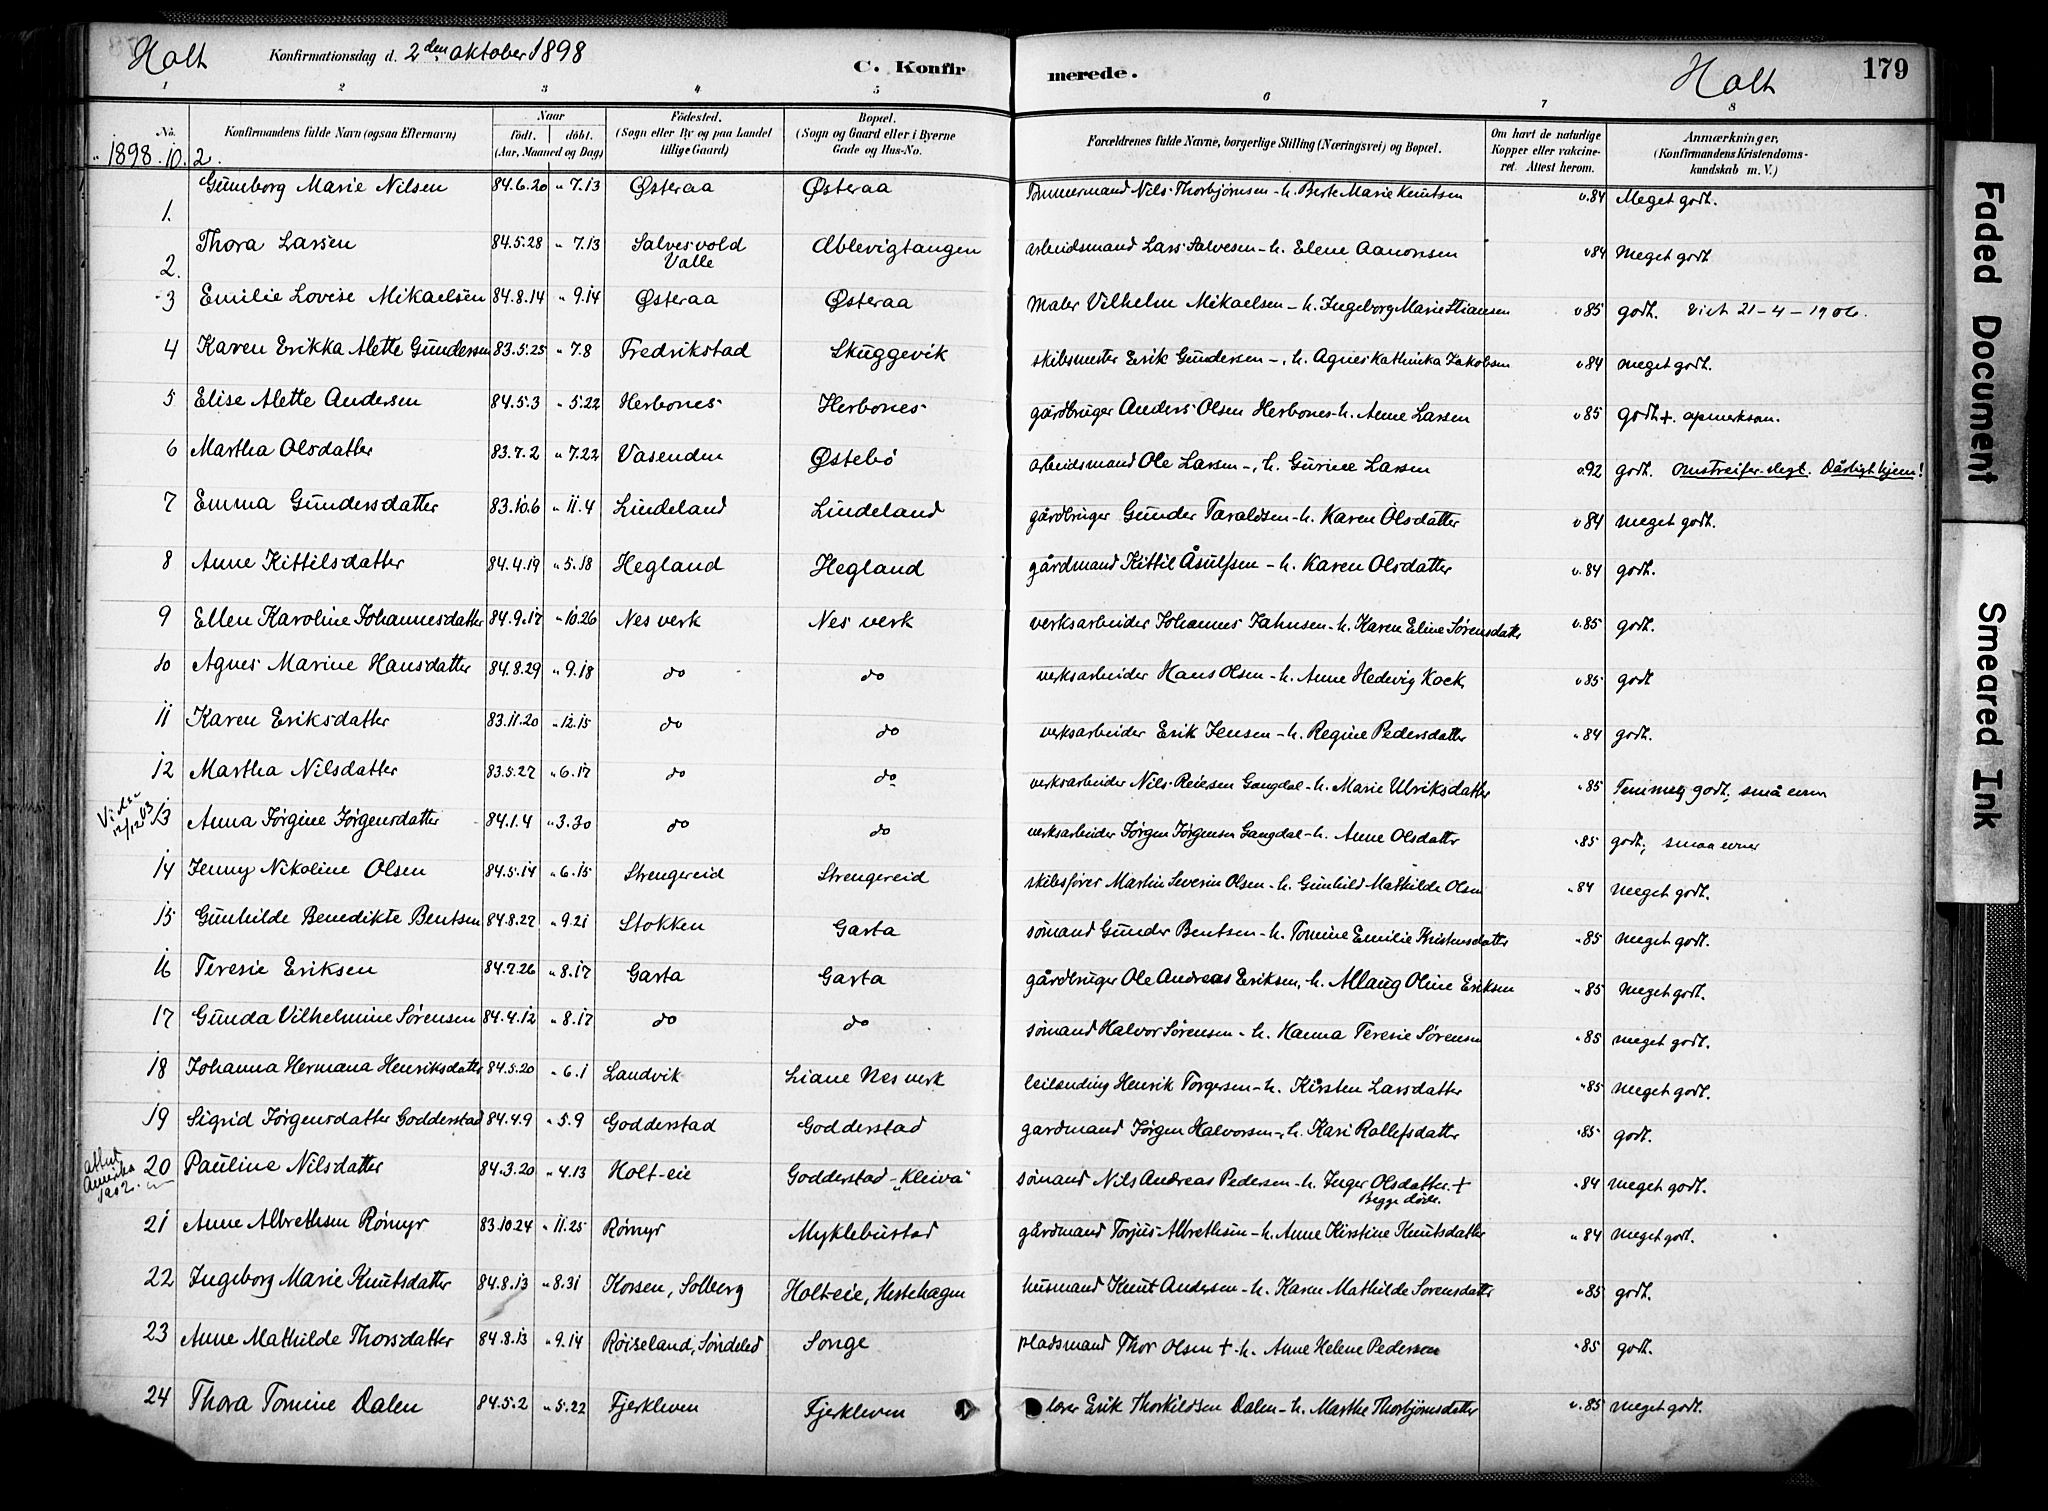 Holt Konfirmationsdag d. 2den oktober 1898 C. Konfirmerede. Holt 179
1 2 3 4 5 6 7 8
No. Konfirmandens fulde Navn (ogsaa Efternavn) Naar født. døbt. (Aar, Maaned og Dag) Fødested. (Sogn eller By og paa Landet tillige Gaard) Bopæl. (Sogn og Gaard eller i Byerne Gade og Hus-No. Forældrenes fulde Navne, borgerlige Stilling (Næringsvei) og Bopæl. Om havt de naturlige Kopper eller vaccineret. Attest herom. Anmærkninger. (Konfirmandens Kristendomskundskab m. V.)
1898. 10. 2.
1. Gunborg Marie Nilsen 84.6.20 " 7.13 Østeraa Østeraa Tømmermand Nils Thorbjørnsen - h. Berte Marie Knutsen v.84 Meget godt.
2. Thora Larsen 84.5.28 " 7.13 Salvesvold Valle Ablevigtangen arbeidsmand Lars Salvesen - h. Elene Aanonsen v84 Meget godt.
3 Emilie Lovise Mikaelsen 84.8.14 " 9.14 Østeraa Østeraa Maler Vilhelm Mikaelsen - h. Ingeborg Marie Stiansen v85 godt. Vict 21-4-1906.
4 Karen Erikka Alette Gundersen 83.5.25 " 7.8 Fredrikstad Skuggevik skibsmester Erik Gundersen -, h. Agnes Kathinka Jakobsen v84 meget godt.
5 Elise Alette Andersen 84.5.3 " 5.22 Herbones Herbones gårdbruger Anders Olsen Herbones - h. Anne Larsen v85 godt+. opmerksom.
6 Martha Olsdatter 83.7.2 " 7.22 Vasenden Østebö arbeidsmand Ole Larsen -, h. Gurine Larsen v.92 godt. Omstreifer-slegt. Dårligt hjem!
7 Emma Gundersdatter 83.10.6 " 11.4 Lindeland Lindeland gårdbruger Gunder Taraldsen - h. Karen Olsdatter v84 meget godt.
8 Anne Kittilsdatter 84.4.19 " 5.18 Hegland Hegland gårdmand Kittil Åsulfsen - h. Karen Olsdatter v.84 godt.
9 Ellen Karoline Johannesdatter 84.9.17 " 10.26 Nes verk Nes verk verksarbeider Johannes Jahnsen - h. Karen Eline Sørensdatter v.85 godt.
10 Agnes Marine Hansdatter 84.8.29 " 9.18 do do verksarbeider Hans Olsen - h. Anne Hedevig Kock, v85 godt
11 Karen Eriksdatter 83.11.20 " 12.15 do do verksarbeider Erik Jensen - h. Regine Pedersdatter "84 godt.
12 Martha Nilsdatter 83.5.27 " 6.17 do do verksarbeider Nils Reiersen Gangdal - h. Marie Ulriksdatter "85 Temmeg godt; små evner
13 Anna Jørgine Jørgensdatter 84.1.4 " 3.30 do do verksarbeider Jørgen Jørgensen Gangdal - h. Anne Olsdatter "85 godt; smaa evner
14 Jenny Nikoline Olsen 84.5.14 " 6.15 Strengereid Strengereid skibsfører Martin Severin Olsen - h. Gunhild Mathilde Olsen "84 meget godt.
15 Gunhilde Benedikte Bentsen 84.8.27 " 9.21 Stokken Garta sømand Gunder Bentsen - h. Tomine Emilie Kristensdatter "85 meget godt.
16 Teresie Eriksen 84.7.26 " 8.17 Garta Garta gårdbruger Ole Andreas Eriksen, h. Allaug Oline Eriksen "85 meget godt.
17 Gunda Vilhelmine Sørensen 84.4.12 " 8.17 do do sømand Halvor Sørensen - h. Hanna Teresie Sørensen "85 meget godt.
18 Johanna Hermana Henriksdatter 84.5.20 " 6.1 Landvik Liane Nes verk leilending Henrik Torgersen - h. Kirsten Larsdatter "85 meget godt.
19 Sigrid Jørgensdatter Godderstad 84.4.9 " 5.9 Godderstad Godderstad gardmand Jørgen Halvorsen -, h. Kari Rollefsdatter "85 godt.
attest Amerika 1902. 20 Pauline Nilsdatter 84.3.20 " 4.13 Holt-eie Godderstad - "Kleiva" sømand Nils Andreas Pedersen - h. Inger Olsdatter. + Begge døde. "84 meget godt.
21 Anne Albrethsen Rømyr 83.10.24 " 11.25 Rømyr Myklebustad gårdmand Torjus Albrethsen - h. Anne Kirstine Knutsdatter "84 meget godt.
22 Ingeborg Marie Knutsdatter 84.8.13 " 8.31 Korsen, Solberg Holt-eie, Hestehagen husmand Knut Andersen - h. Karen Mathilde Sørensdatter "85 godt.
23 Anne Mathilde Thorsdatter 84.8.13 " 9.14 Røiseland, Søndeled Songe pladsmand Thor Olsen + - h. Anne Helene Pedersen "85 godt.
24 Thora Tomine Dalen 84.5.2 " 5.22 Fjerkleven Fjerkleven lærer Erik Thorkildsen Dalen - h. Marthe Thorbjørnsdatter v.85 meget godt.
Faded Document
Smeared Ink